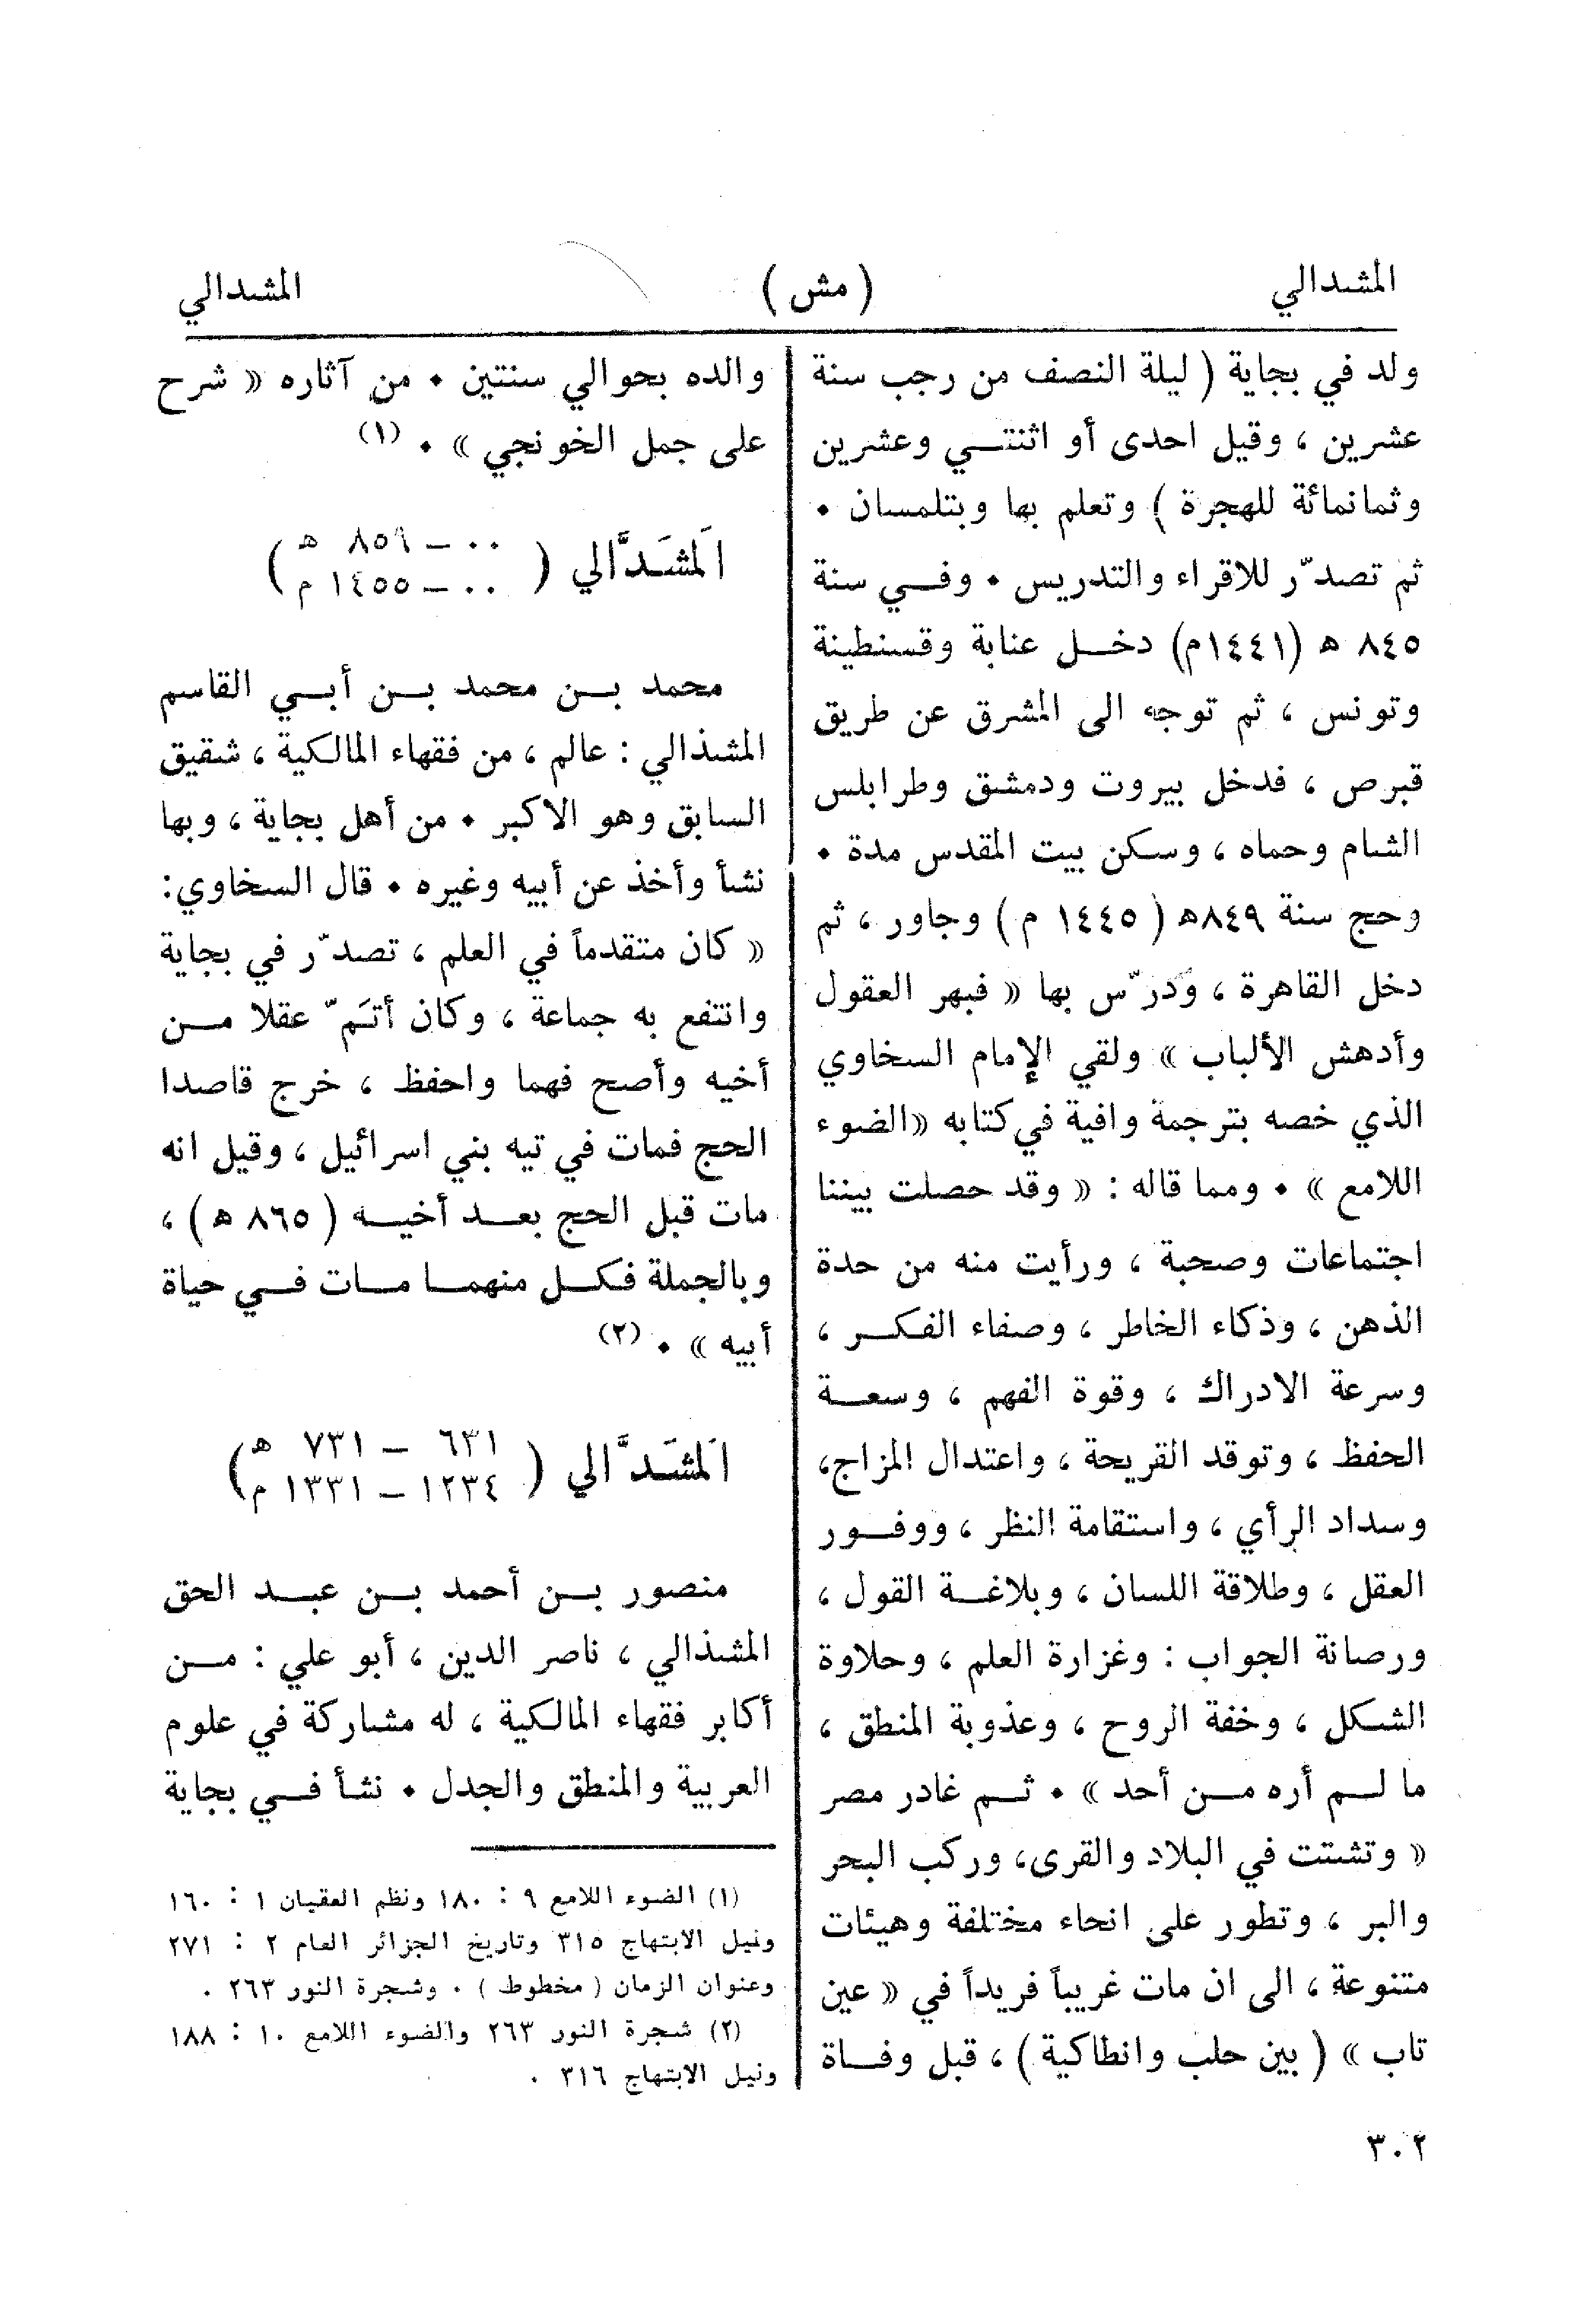 المشدالي ( مش ) المشدالي
ولد في بجاية ( ليلة النصف من رجب سنة
عشرين ، وقيل احدى أو اثنتي وعشرين
وثمانمائة للهجرة ) وتعلم بها وبتلمسان .
ثم تصدّر للاقراء والتدريس . وفي سنة
٨٤٥ هـ (١٤٤١م) دخل عنابة وقسنطينة
وتونس ، ثم توجه الى المشرق عن طريق
قبرص ، فدخل بيروت ودمشق وطرابلس
الشام وحماه ، وسكن بيت المقدس مدة .
وحج سنة ٨٤٩هـ ( ١٤٤٥ م ) وجاور ، ثم
دخل القاهرة ، وَدرّس بها « فبهر العقول
وأدهش الألباب » ولقي الإمام السخاوي
الذي خصه بترجمة وافية في كتابه «الضوء
اللامع » . ومما قاله : « وقد حصلت بيننا
اجتماعات وصحبة ، ورأيت منه من حدة
الذهن ، وذكاء الخاطر ، وصفاء الفكر ،
وسرعة الادراك ، وقوة الفهم ، وسعة
الحفظ ، وتوقد القريحة ، واعتدال المزاج،
وسداد الرأي ، واستقامة النظر ، ووفور
العقل ، وطلاقة اللسان ، وبلاغة القول ،
ورصانة الجواب : وغزارة العلم ، وحلاوة
الشكل ، وخفة الروح ، وعذوبة المنطق ،
ما لم أره من أحد » . ثم غادر مصر
« وتشتت في البلاد والقرى، وركب البحر
والبر ، وتطور على انحاء مختلفة وهيئات
متنوعة ، الى ان مات غريباً فريداً في « عين
تاب » ( بين حلب وانطاكية ) ، قبل وفاة
والده بحوالي سنتين . من آثاره « شرح
على جمل الخونجي » . (١)
اَلمشَدَّالي ( ٠٠ – ٨٥٩ هـ
٠٠ – ١٤٥٥ م )
محمد بن محمد بن أبي القاسم
المشذالي : عالم ، من فقهاء المالكية ، شقيق
السابق وهو الاكبر . من أهل بجاية ، وبها
نشأ وأخذ عن أبيه وغيره . قال السخاوي:
« كان متقدماً في العلم ، تصدّر في بجاية
وانتفع به جماعة ، وكان أتمَّ عقلا من
أخيه وأصح فهما واحفظ ، خرج قاصدا
الحج فمات في تيه بني اسرائيل ، وقيل انه
مات قبل الحج بعد أخيه ( ٨٦٥ هـ ) ،
وبالجملة فكل منهما مات في حياة
أبيه » . (٢)
اَلمشَدَّالي ( ٦٣١ – ٧٣١ هـ
١٢٣٤ – ١٣٣١ م )
منصور بن أحمد بن عبد الحق
المشذالي ، ناصر الدين ، أبو علي : من
أكابر فقهاء المالكية ، له مشاركة في علوم
العربية والمنطق والجدل . نشأ في بجاية
(١) الضوء اللامع ٩ : ١٨٠ ونظم العقيان ١ : ١٦٠
ونيل الابتهاج ٣١٥ وتاريخ الجزائر العام ٢ : ٢٧١
وعنوان الزمان ( مخطوط ) . وشجرة النور ٢٦٣ .
(٢) شجرة النور ٢٦٣ والضوء اللامع ١٠ : ١٨٨
ونيل الابتهاج ٣١٦ .
٣٠٢